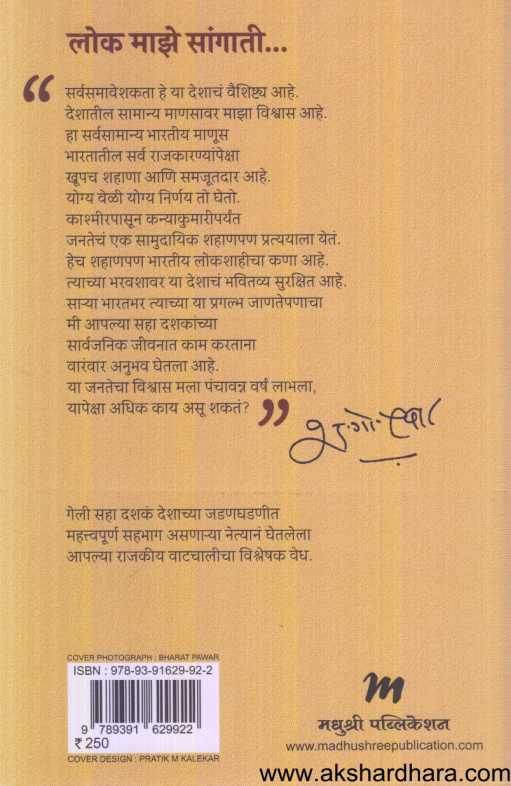 लोक माझे सांगाती...
“ सर्वसमावेशकता हे या देशाचं वैशिष्ट्य आहे.
देशातील सामान्य माणसावर माझा विश्वास आहे.
हा सर्वसामान्य भारतीय माणूस
भारतातील सर्व राजकारण्यांपेक्षा
खूपच शहाणा आणि समजूतदार आहे.
योग्य वेळी योग्य निर्णय तो घेतो.
काश्मीरपासून कन्याकुमारीपर्यंत
जनतेचं एक सामुदायिक शहाणपण प्रत्ययाला येतं.
हेच शहाणपण भारतीय लोकशाहीचा कणा आहे.
त्याच्या भरवशावर या देशाचं भवितव्य सुरक्षित आहे.
साऱ्या भारतभर त्याच्या या प्रगल्भ जाणतेपणाचा
मी आपल्या सहा दशकांच्या
सार्वजनिक जीवनात काम करताना
वारंवार अनुभव घेतला आहे.
या जनतेचा विश्वास मला पंचावन्न वर्षं लाभला,
यापेक्षा अधिक काय असू शकतं? ”
गेली सहा दशकं देशाच्या जडणघडणीत
महत्त्वपूर्ण सहभाग असणाऱ्या नेत्यानं घेतलेला
आपल्या राजकीय वाटचालीचा विश्लेषक वेध.
COVER PHOTOGRAPH : BHARAT PAWAR
ISBN : 978-93-91629-92-2
9 789391 629922
₹ 250
COVER DESIGN : PRATIK M KALEKAR
m
मधुश्री पब्लिकेशन
www.madhushreepublication.com
www.akshardhara.com